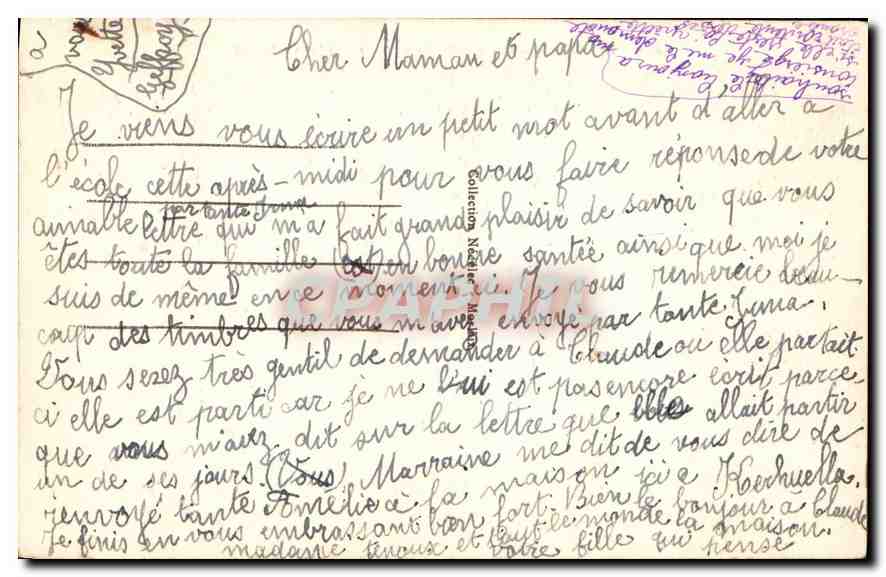 Cher Maman et papa
Je viens vous écrire un petit mot avant d'aller à
l'école cette après-midi pour vous faire réponse de votre
aimable lettre par tante Irma qui m'a fait grand plaisir de savoir que vous
êtes toute la famille en bonne santée ainsi que moi je
suis de même en ce moment ci. Je vous remercie beau-
coup des timbres que vous m'avez envoyé par tante Irma.
Vous serez très gentil de demander à Claude ou elle partait
ci elle est parti car je ne lui est pas encore écrit parce
que vous m'avez dit sur la lettre que elle allait partir
un de ses jours. (Vous) Marraine me dit de vous dire de
renvoyé tante Amélie à la maison ici a Kerhuella.
Je finis en vous embrassant bien fort. Bien le bonjour à Claude
madame et tout le monde la maison.
votre fille qui pense
à vous
Yvette
souhaite
Collection Nécélec
CPAPHIL